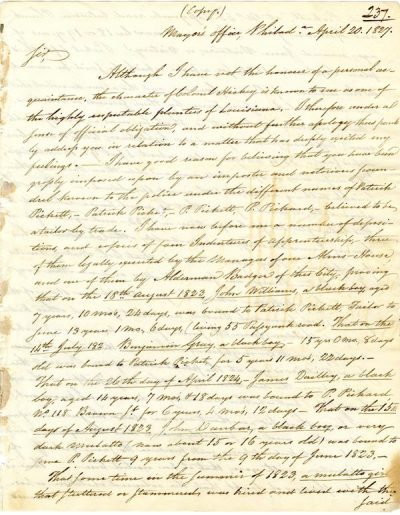 (Copy)
237.
Mayor's office Philad.a April 20. 1827.
Sir,
Although I have not the honour of a personal ac-
quaintance, the character of Colonel Hickey is known to me as one of
the highly respectable planters of Louisiana. I therefore under a
sense of official obligation, and without further apology thus frank
ly address you in relation to a matter that has deeply excited my
feelings. I have good reason for believing that you have been
grossly imposed upon by an imposter and notorious scoun-
drel known to the police under the different names of Patrick
Pickett, – Patrick Picket, – P. Pickett, P. Pickard, – believed to be
a tailor by trade. I have now before me a number of deposi-
tions and copies of four Indentures of apprenticeship, three
of them legally executed by the Managers of our Alms-House
and one of them by Alderman Badger of this City, proving
that on the 18th August 1823, John Williams, a black boy aged
7 years, 10 mos, 24 days, was bound to Patrick Pickett, Tailor to
serve 13 years 1 mo, 6 days, (living 55 Passyunk road. That on the
14th July 182 Benjamin Gray, a black boy 15 yrs 0 mo. 8 days
old was bound to Patrick Picket, for 5 years 11 mos, 22 days. –
That on the 26th day of April 1824 – James Dailey, a black
boy, aged 14 years, 7 mos & 18 days was bound to P. Pickard
No. 118 Brown St for 6 years, 4 mos, 12 days – That on the 15th
day of August 1823 John Dunbar, a black boy, or very
dark mulatto (now about 15 or 16 years old) was bound to
serve P. Pickett 9 years from the 9th day of June 1823. –
That some time in the summer of 1823, a mulatto girl
that stuttered or stammered was hired and lived with the
said